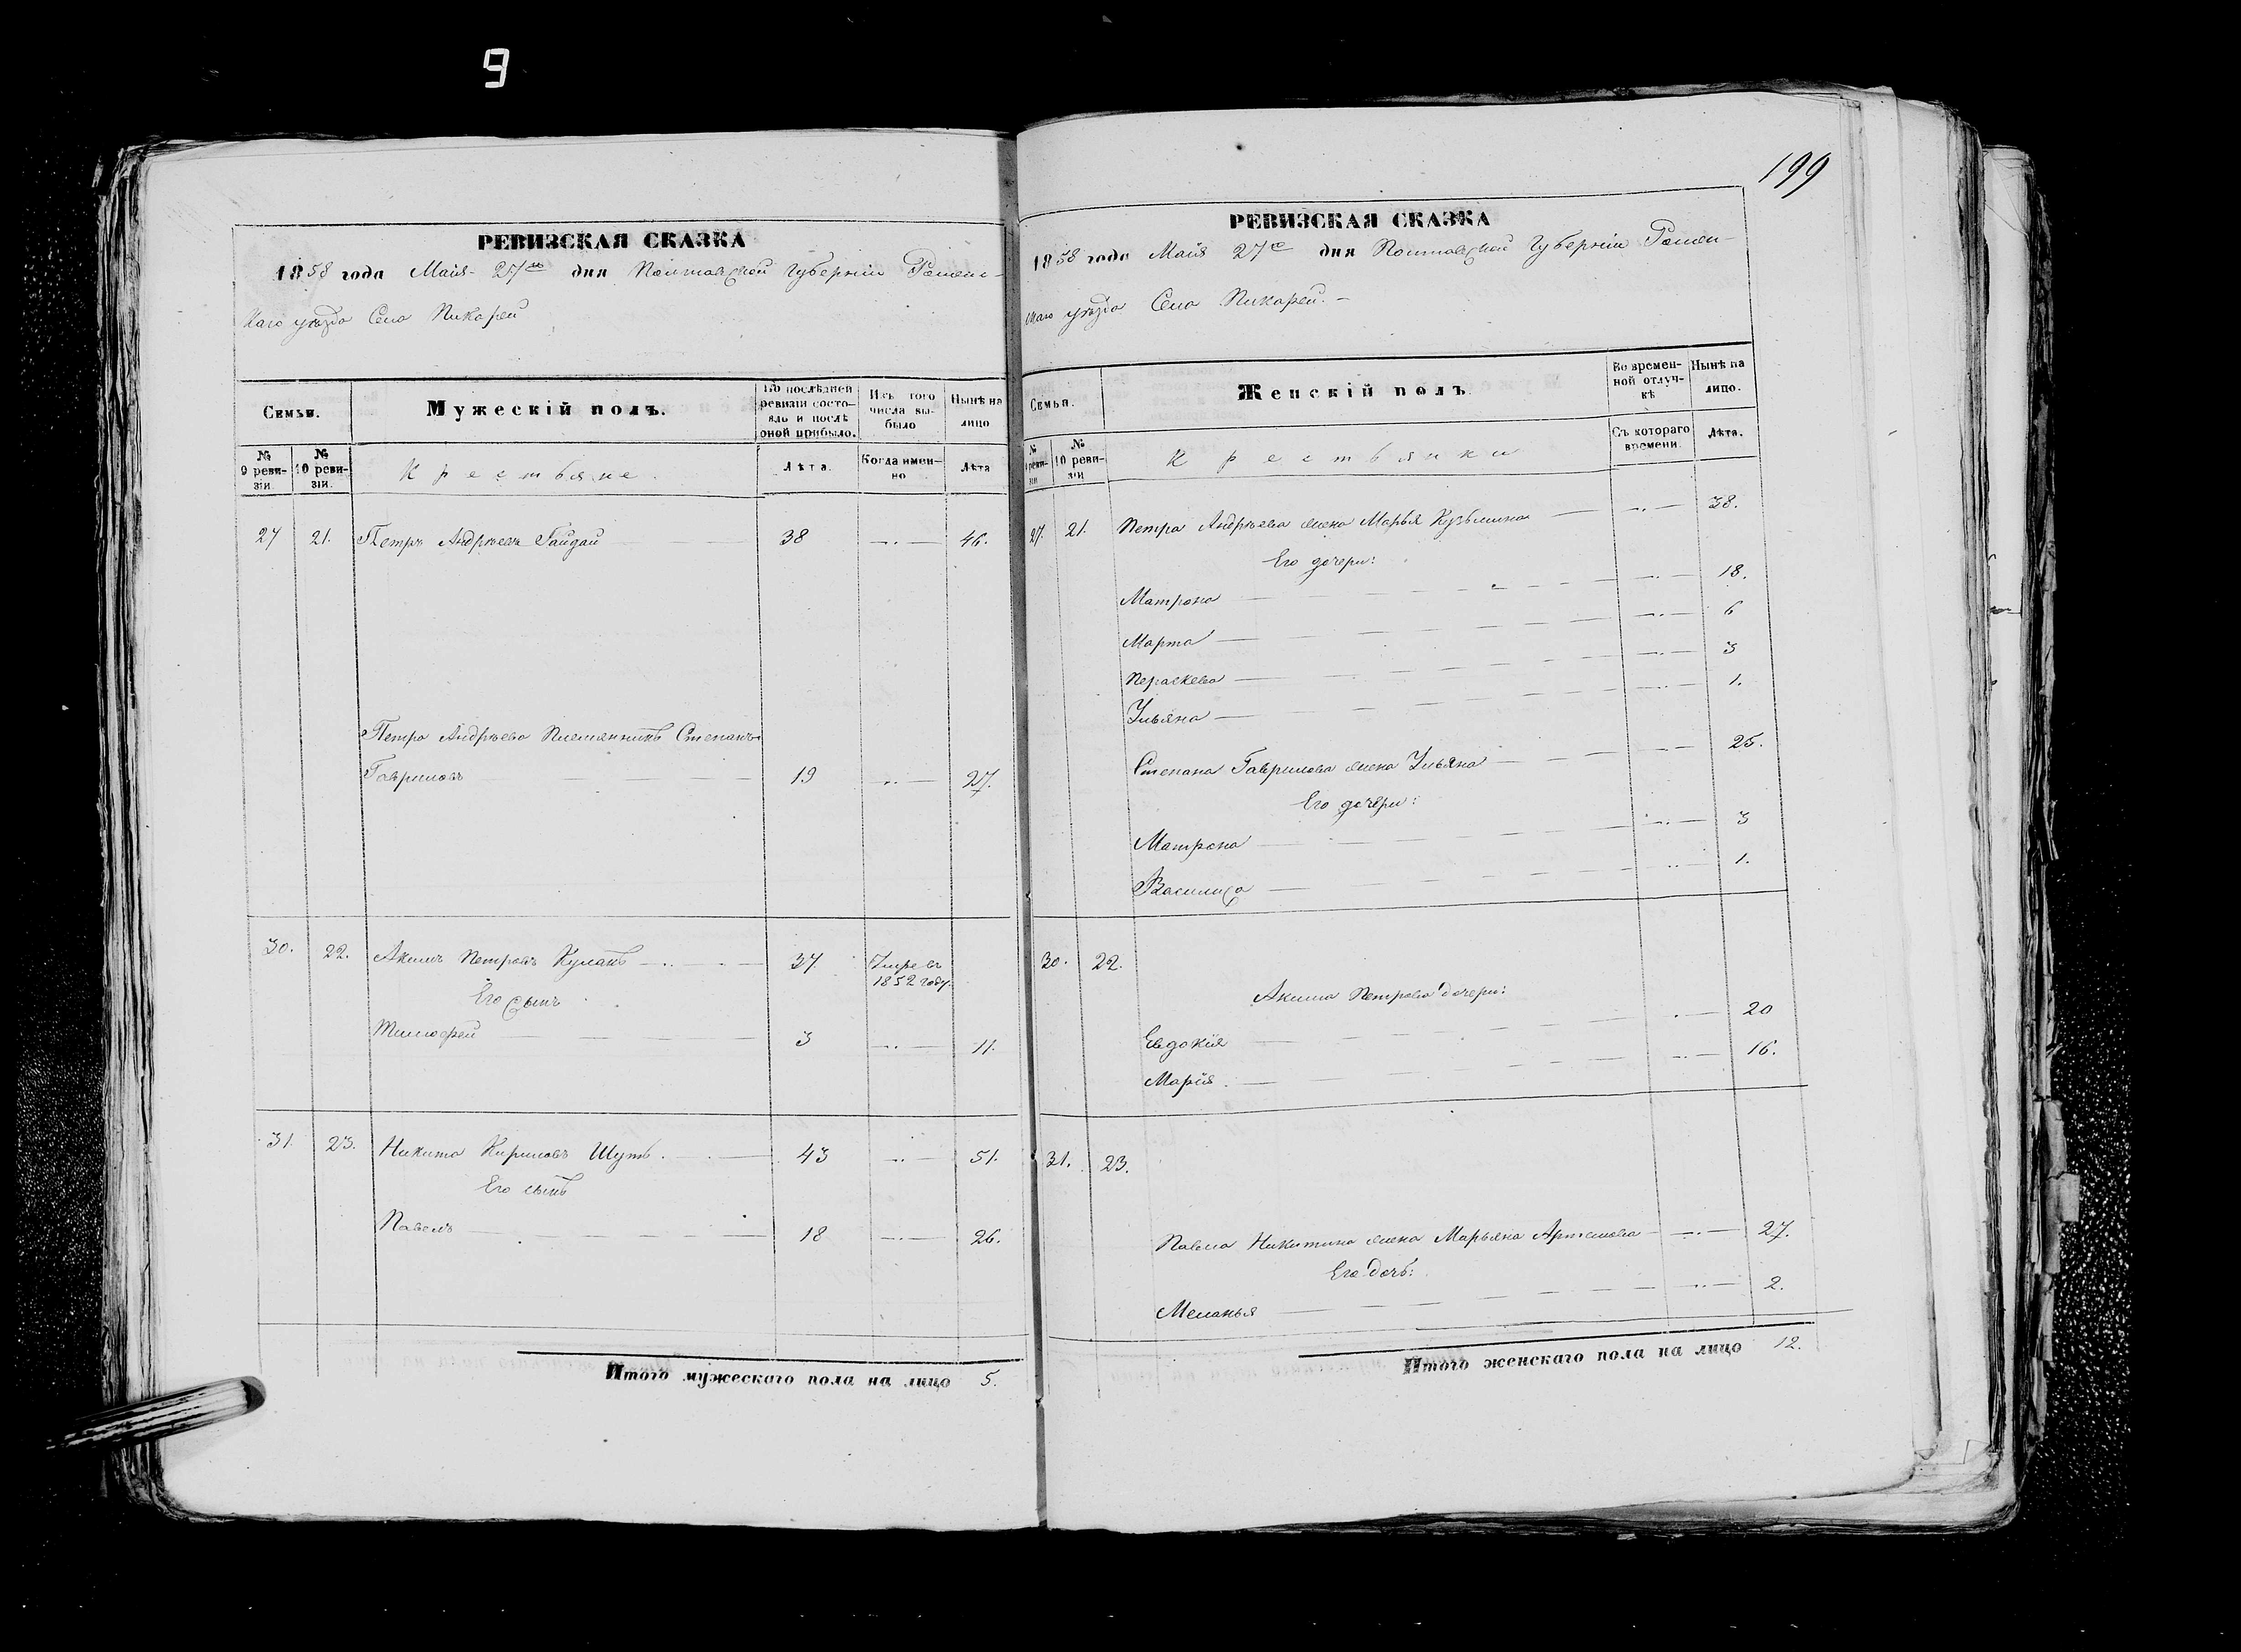 9
199
РЕВИЗСКАЯ СКАЗКА
1858 года Маія 27го дня Полтавской Губерніи Ромен-
скаго уѣзда Села Пикарей
Семьи.
Мужескій полъ.
Въ послѣдней ревизіи состо-яло и послѣ оной прибыло.
Изъ того числа вы-было
Нынѣ на лицо
№ 9 реви-зіи.
№ 10 реви-зіи.
Крестьяне.
Лѣта.
Когда имен-но
Лѣта
27 21. Петръ Андреевъ Гайдай 38 46.
Петра Андреева Племянникъ Степанъ
Гавриловъ 19 27.
30. 22. Акимъ Петровъ Кулакъ 37 Умре въ 1852 году.
Его сынъ
Тимофей 3 11.
31. 23. Никита Кириловъ Шутъ. 43 51.
Его сынъ
Павелъ 18 26.
Итого мужескаго пола на лицо 5.
РЕВИЗСКАЯ СКАЗКА
1858 года Маія 27го дня Полтавской Губерніи Ромен-
скаго уѣзда Села Пикарей.
Семьи.
Женскій полъ
Во времен-ной отлуч-кѣ
Нынѣ на лицо.
№ 9 реви-зіи
№ 10 реви-зіи
Крестьянки
Съ котораго времени.
Лѣта.
27. 21. Петра Андреева жена Марья Кузьмина 38.
Его дочери:
Матрона 18.
Марта 6
Пераскева 3
Ульяна 1.
Степана Гаврилова жена Ульяна 25.
Его дочери:
Матрона 3
Василиса 1.
30. 22.
Акима Петрова дочери:
Евдокія 20
Марія. 16.
31. 23.
Павла Никитина жена Марьяна Артемова 27.
Его дочь:
Меланья 2.
Итого женскаго пола на лицо 12.